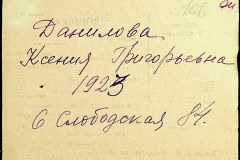 Данилова
Ксения Григорьевна
1923
6 Слободская 84.